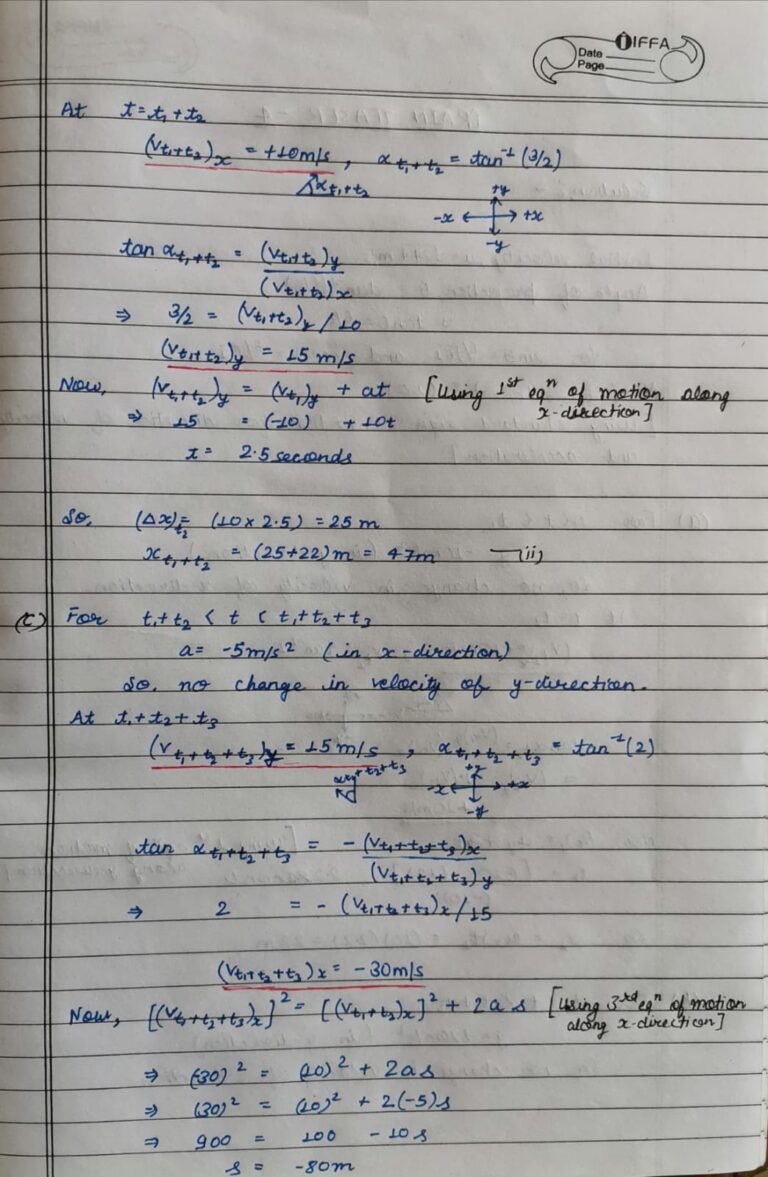 IFFA
Date
Page
At t = t₁ + t₂
(Vt₁+t₂)x = +10m/s , αt₁+t₂ = tan⁻¹ (3/2)
αt₁+t₂
+y
-x +x
-y
tan αt₁+t₂ = (Vt₁+t₂)y / (Vt₁+t₂)x
⇒ 3/2 = (Vt₁+t₂)y / 10
(Vt₁+t₂)y = 15 m/s
Now, (Vt₁+t₂)y = (Vt₁)y + at [Using 1st eqn of motion along
x-direction]
⇒ 15 = (-10) + 10t
t = 2.5 seconds
So, (Δx)t₂ = (10 × 2.5) = 25 m
xt₁+t₂ = (25+22)m = 47m —(ii)
(C) For t₁+t₂ < t < t₁+t₂+t₃
a = -5m/s² (in x-direction)
So, no change in velocity of y-direction.
At t₁+t₂+t₃
(Vt₁+t₂+t₃)y = 15 m/s , αt₁+t₂+t₃ = tan⁻¹(2)
αt₁+t₂+t₃
-x +x
-y
tan αt₁+t₂+t₃ = -(Vt₁+t₂+t₃)x / (Vt₁+t₂+t₃)y
⇒ 2 = - (Vt₁+t₂+t₃)x/15
(Vt₁+t₂+t₃)x = -30m/s
Now, [(Vt₁+t₂+t₃)x]² = [(Vt₁+t₂)x]² + 2as [Using 3rd eqn of motion
along x-direction]
⇒ (-30)² = (10)² + 2as
⇒ (30)² = (10)² + 2(-5)s
⇒ 900 = 100 - 10s
s = -80m